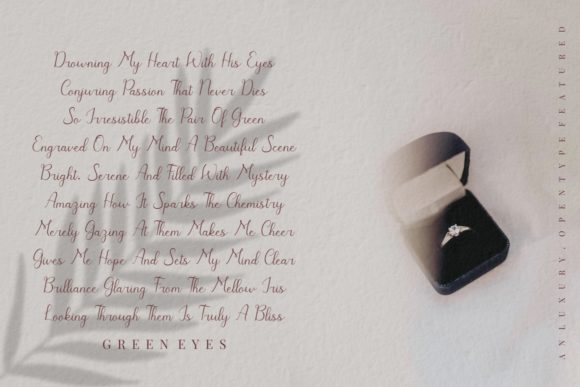 Drowning My Heart With His Eyes
Conjuring Passion That Never Dies
So Irresistible The Pair Of Green
Engraved On My Mind A Beautiful Scene
Bright, Serene And Filled With Mystery
Amazing How It Sparks The Chemistry
Merely Gazing At Them Makes Me Cheer
Gives Me Hope And Sets My Mind Clear
Brilliance Glaring From The Mellow Iris
Looking Through Them Is Truly A Bliss
GREEN EYES
ANLUXURY, OPENTYPE FEATURED